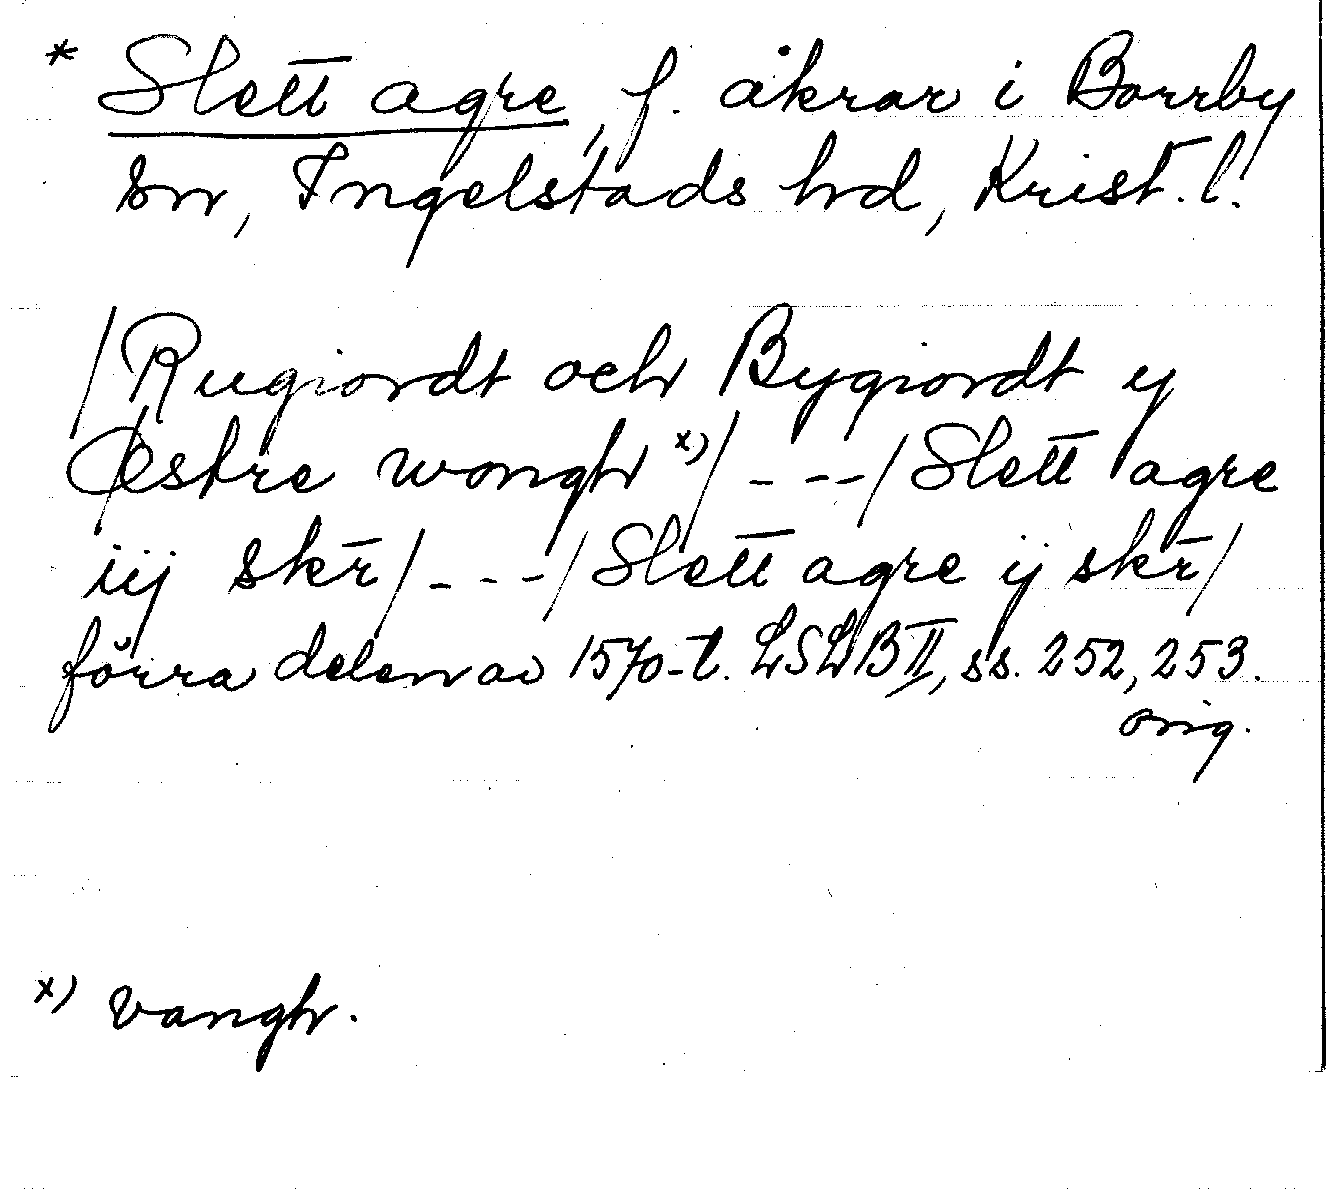 * Slett agre, f. åkrar i Borrby
sn, Ingelstads hd, Krist. l.
/Rugiordt och Bygiordt y
Østre wongh x)/ - - -/Slett agre
iij skr̄/ - - -/Slett agre ij skr̄/
förra delen av 1570-t. LSLB II, ss. 252, 253.
orig.
x) vangh.